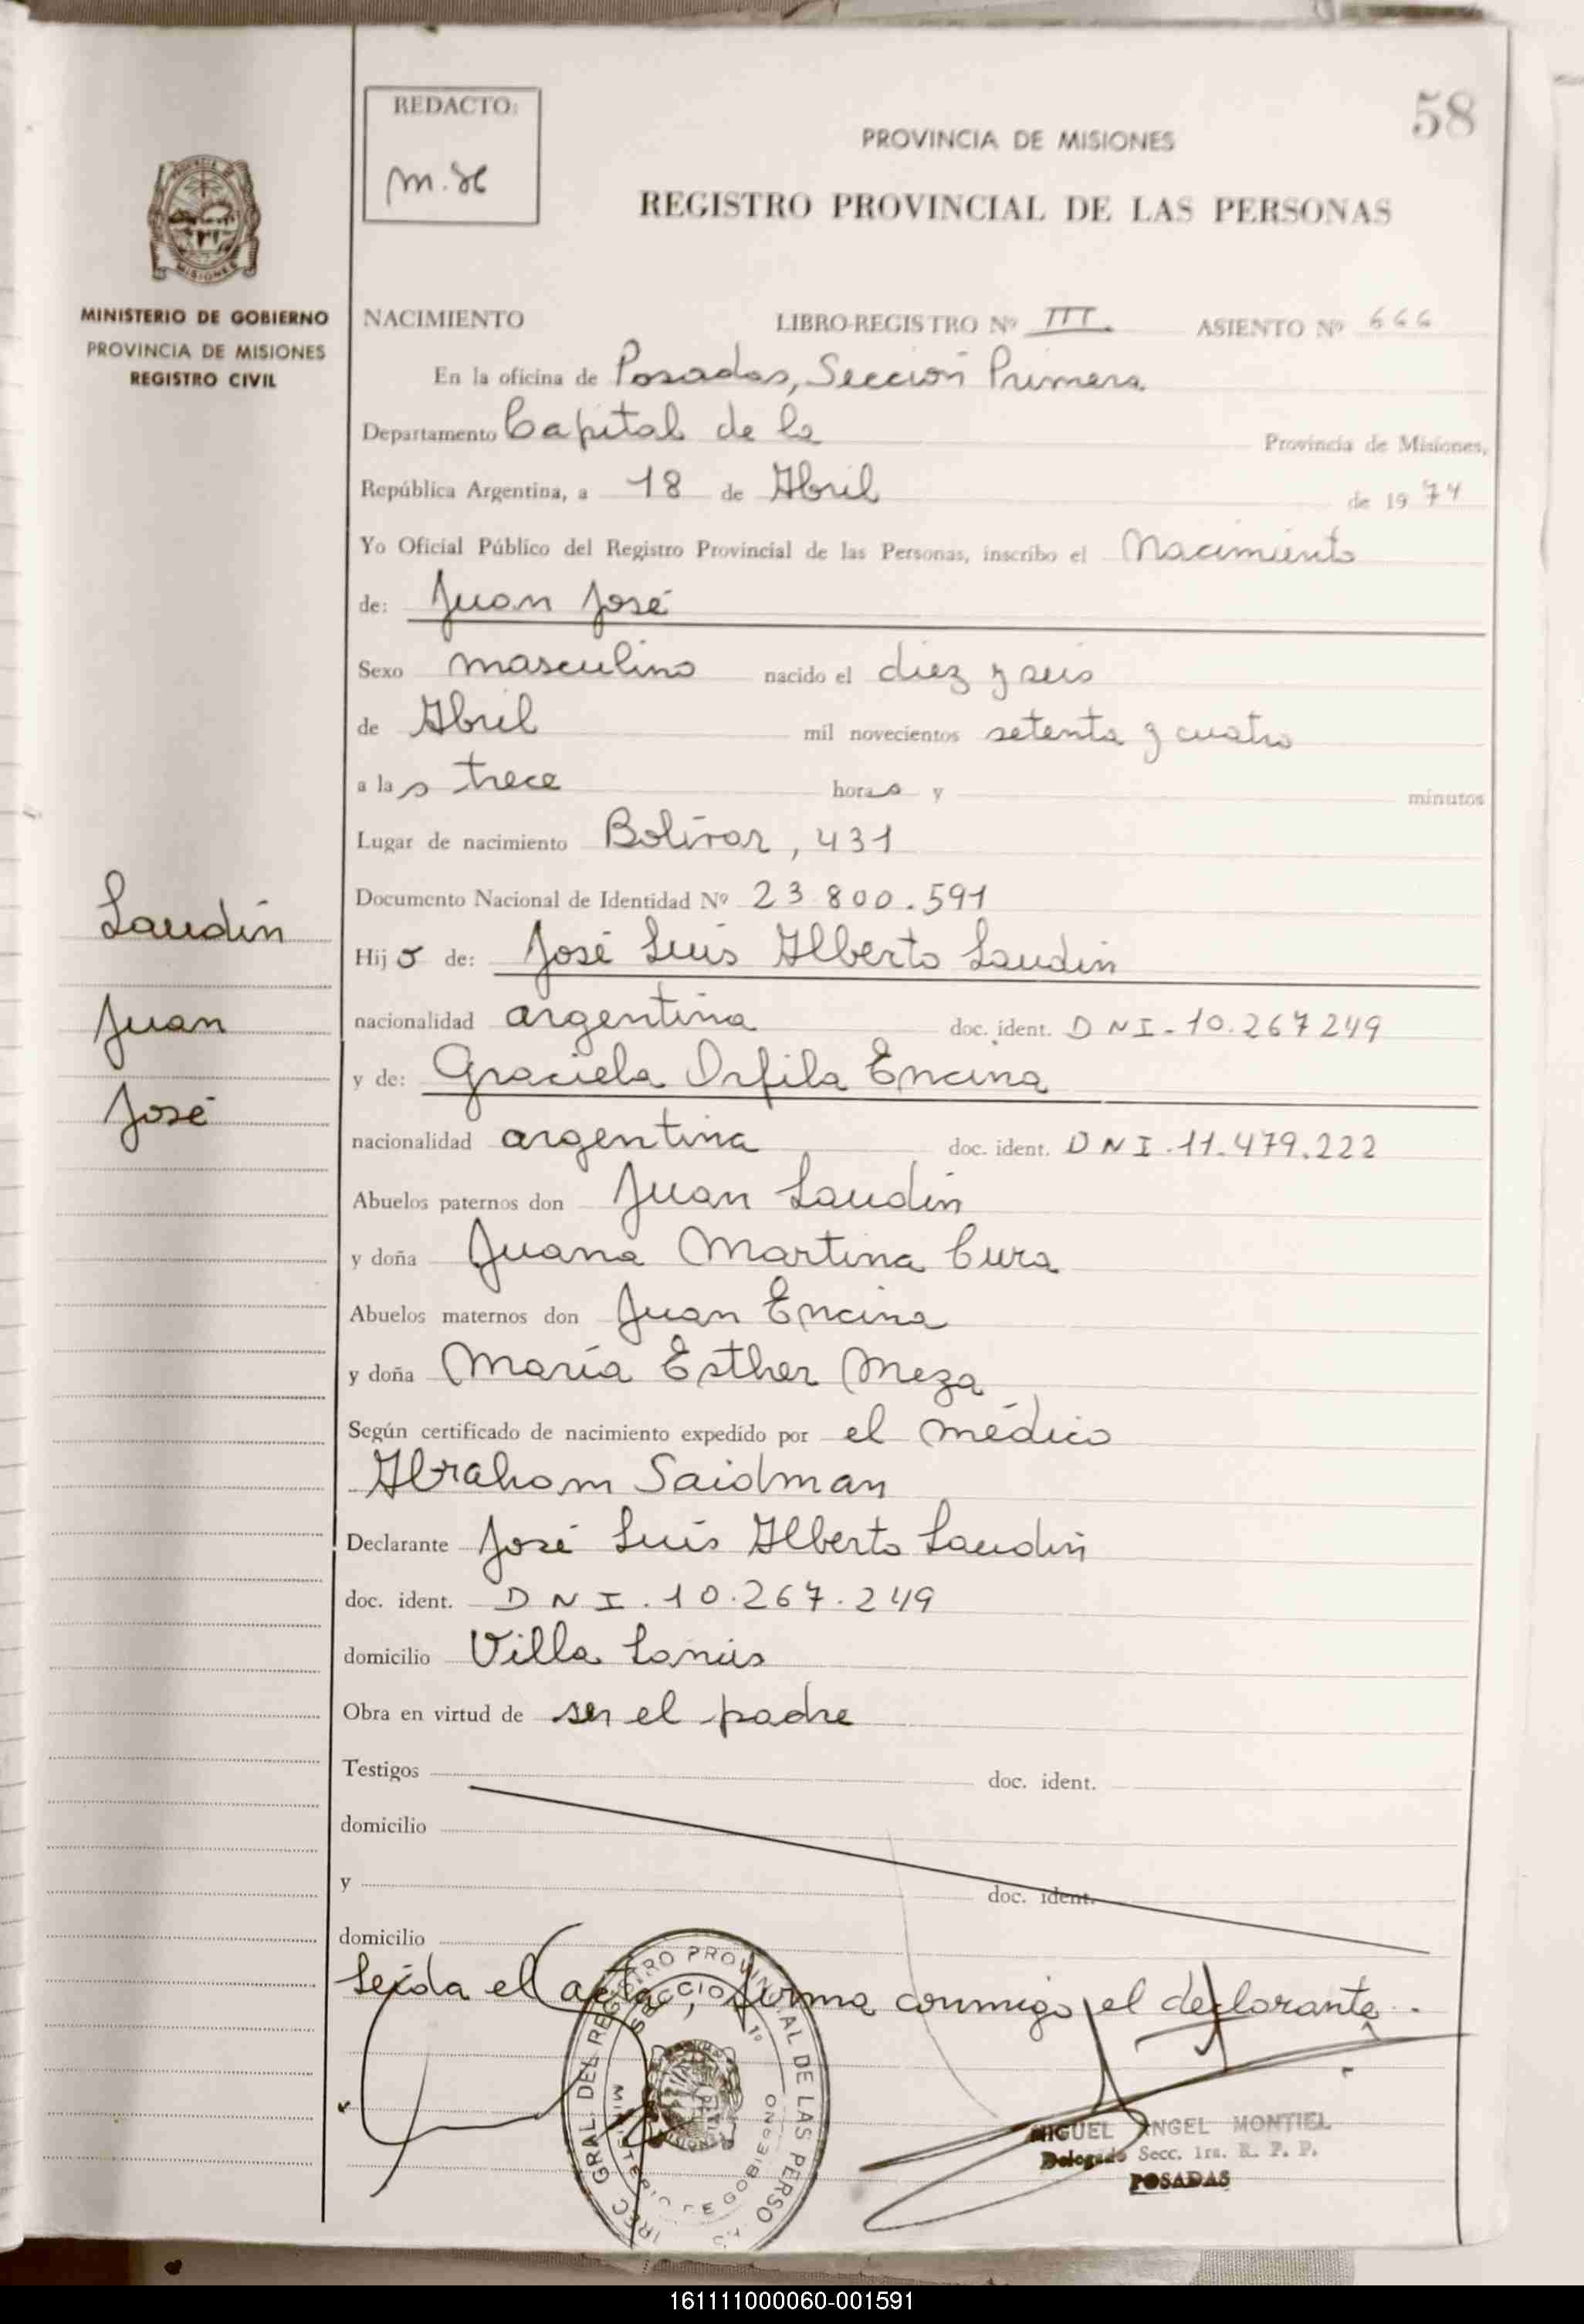 REDACTO:
58
PROVINCIA DE MISIONES
REGISTRO PROVINCIAL DE LAS PERSONAS
PROVINCIA DE
MISIONES
MINISTERIO DE GOBIERNO
PROVINCIA DE MISIONES
REGISTRO CIVIL
NACIMIENTO LIBRO-REGISTRO Nº III. ASIENTO Nº 666
En la oficina de Posadas, Sección Primera
Departamento Capital de la Provincia de Misiones,
República Argentina, a 18 de Abril de 1974
Yo Oficial Público del Registro Provincial de las Personas, inscribo el Nacimiento
de: Juan José
Sexo masculino nacido el diez y seis
de Abril mil novecientos setenta y cuatro
a las trece horas y minutos
Lugar de nacimiento Bolívar, 431
Documento Nacional de Identidad Nº 23.800.591
Laudin
Hijo de: José Luis Alberto Laudin
Juan
nacionalidad argentina doc. ident. DNI-10.267249
y de: Graciela Orfila Encina
José
nacionalidad argentina doc. ident. DNI.11.479.222
Abuelos paternos don Juan Laudin
y doña Juana Martina Cura
Abuelos maternos don Juan Encina
y doña María Esther Meza
Según certificado de nacimiento expedido por el médico
Abraham Saidman
Declarante José Luis Alberto Laudin
doc. ident. DNI.10.267.249
domicilio Villa Lanús
Obra en virtud de ser el padre
Testigos doc. ident.
domicilio
y doc. ident.
domicilio
Leída el acta, firma conmigo el declarante.
GRAL. DEL REGISTRO PROVINCIAL DE LAS PERSO
SECCION 1º
MINISTERIO DE GOBIERNO
MIGUEL ANGEL MONTIEL
Delegado Secc. 1ra. R. P. P.
POSADAS
161111000060-001591